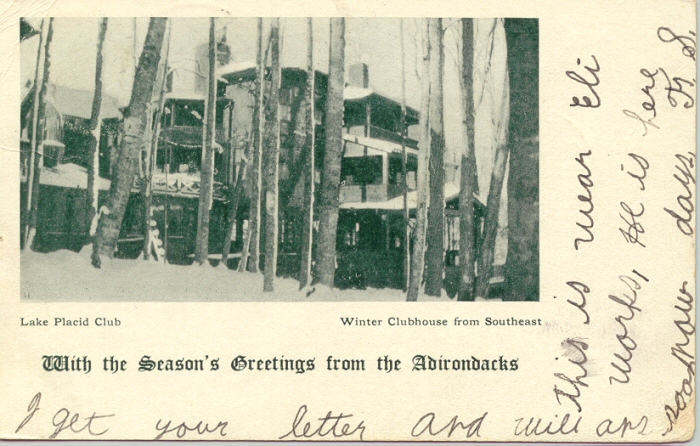 Lake Placid Club
Winter Clubhouse from Southeast
With the Season's Greetings from the Adirondacks
I get your letter and will ans
soon
this is wear Eli
works, He is here
now days, F. S.